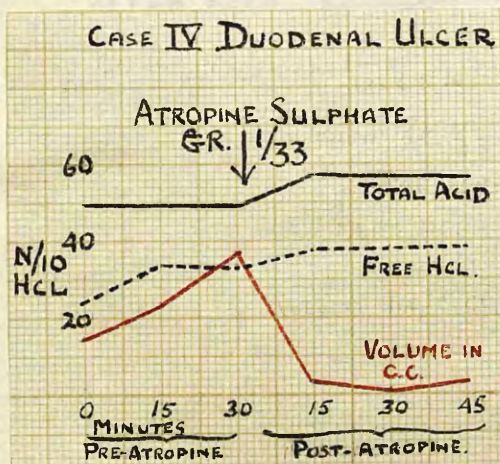 CASE IV DUODENAL ULCER
ATROPINE SULPHATE
GR. 1/33
60
TOTAL ACID
40
N/10
HCL
FREE HCL.
20
VOLUME IN
C.C.
0 15 30 15 30 45
MINUTES
PRE-ATROPINE POST-ATROPINE.